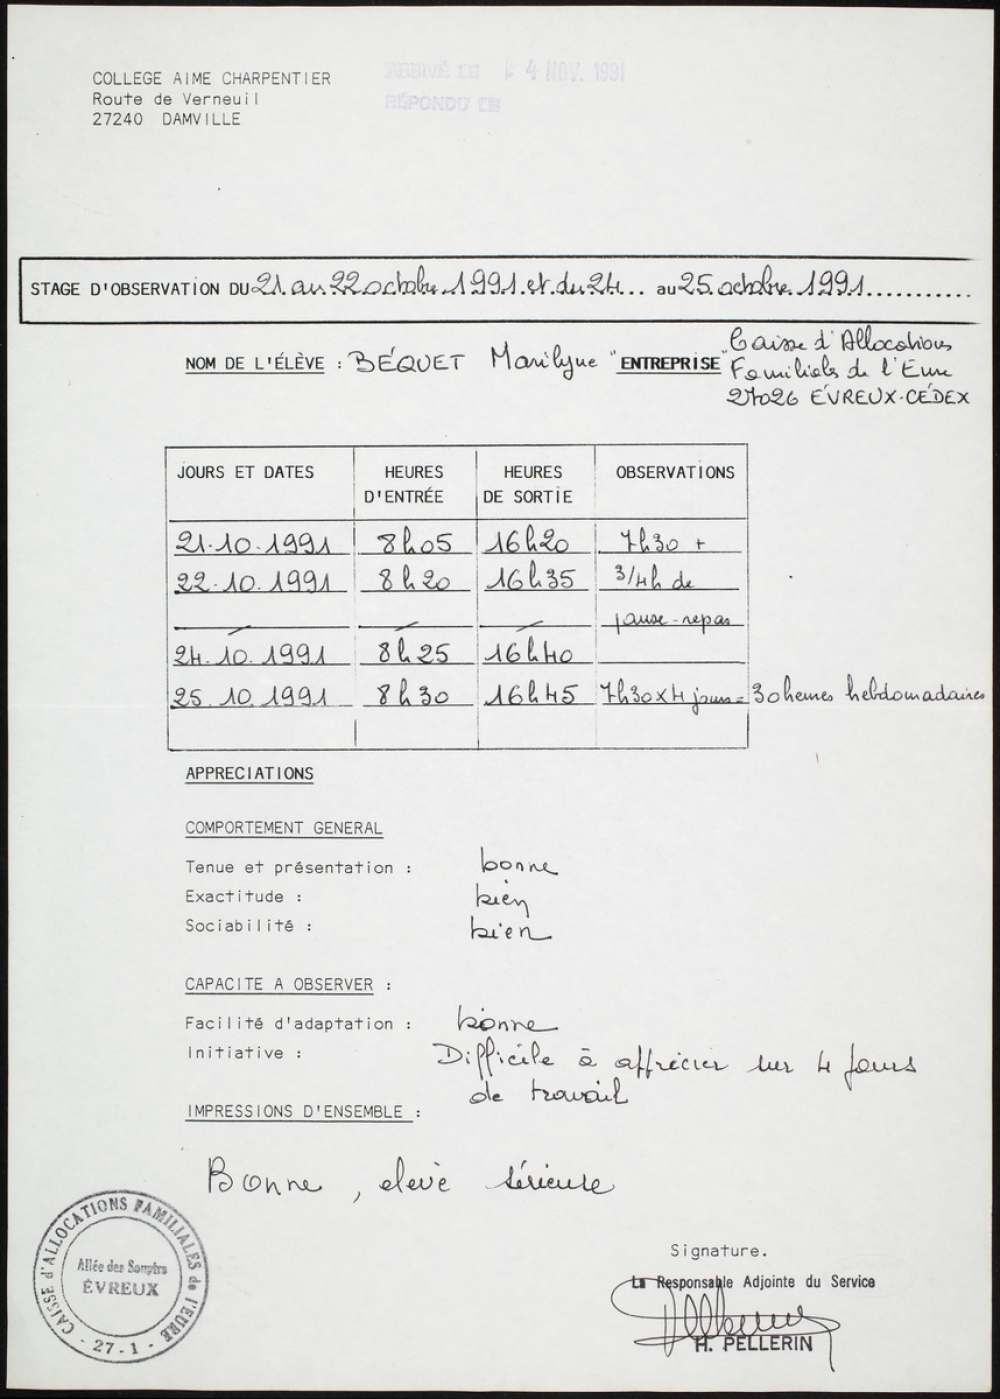 COLLEGE AIME CHARPENTIER
Route de Verneuil
27240 DAMVILLE
ARRIVÉ LE 4 NOV. 1991
RÉPONDU LE
STAGE D'OBSERVATION DU 21 au 22 octobre 1991 et du 24... au 25 octobre 1991............
NOM DE L'ÉLÈVE : BÉQUET Marilyne "ENTREPRISE" Caisse d'Allocations
Familiales de l'Eure
27026 ÉVREUX-CÉDEX
JOURS ET DATES HEURES D'ENTRÉE HEURES DE SORTIE OBSERVATIONS
21.10.1991 8h05 16h20 7h30 +
22.10.1991 8h20 16h35 3/4h de
pause-repas
24.10.1991 8h25 16h40
25.10.1991 8h30 16h45 7h30x4 jours = 30 heures hebdomadaires
APPRECIATIONS
COMPORTEMENT GENERAL
Tenue et présentation : bonne
Exactitude : bien
Sociabilité : bien
CAPACITE A OBSERVER :
Facilité d'adaptation : bonne
Initiative : Difficile à apprécier sur 4 jours
de travail
IMPRESSIONS D'ENSEMBLE :
Bonne, elevè sérieuse
CAISSE d'ALLOCATIONS FAMILIALES de l'EURE
Allée des Soupirs
ÉVREUX
- 27-1 -
Signature.
La Responsable Adjointe du Service
H. PELLERIN